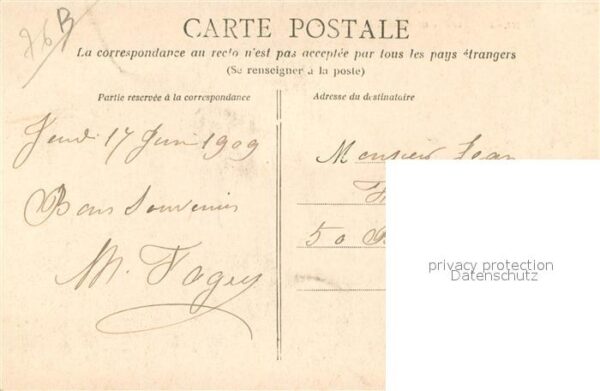 76 B
CARTE POSTALE
La correspondance au recto n'est pas acceptée par tous les pays étrangers
(Se renseigner à la poste)
Partie réservée à la correspondance
Adresse du destinataire
Jeudi 17 Juin 1909
Monsieur Jean
Bons Souvenirs
50
M.
privacy protection
Datenschutz